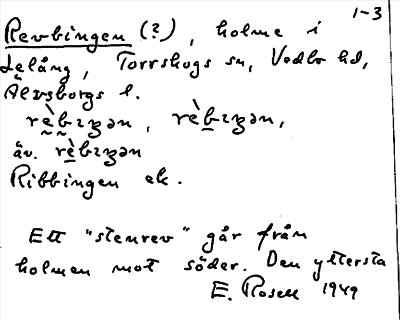 1-3
Revbingen (?), holme i
Lelång, Torrskogs sn, Vedbo hd,
Älvsborgs l.
rèbɪŋən, rèbɪŋən,
äv. rèbɪŋən
Ribbingen ek.
Ett "stenrev" går från
holmen mot söder. Den yttersta
E. Rosell 1949